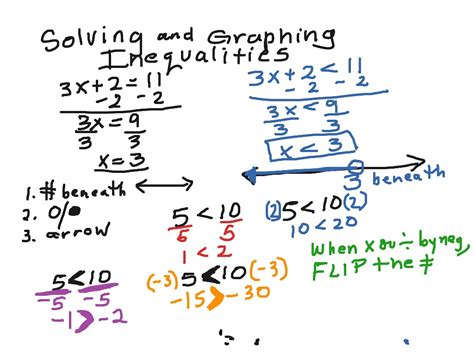 Solving and Graphing
Inequalities
3x+2=11
-2 -2
3x=9
3 3
x=3
3x+2<11
-2 -2
3x<9
3 3
x<3
3
beneath
1. # beneath
2. O/●
3. arrow
5<10
5 5
1<2
(2)5<10(2)
10<20
When x or ÷ by neg,
FLIP the ≠
5<10
-5 -5
-1>-2
(-3)5<10(-3)
-15>-30